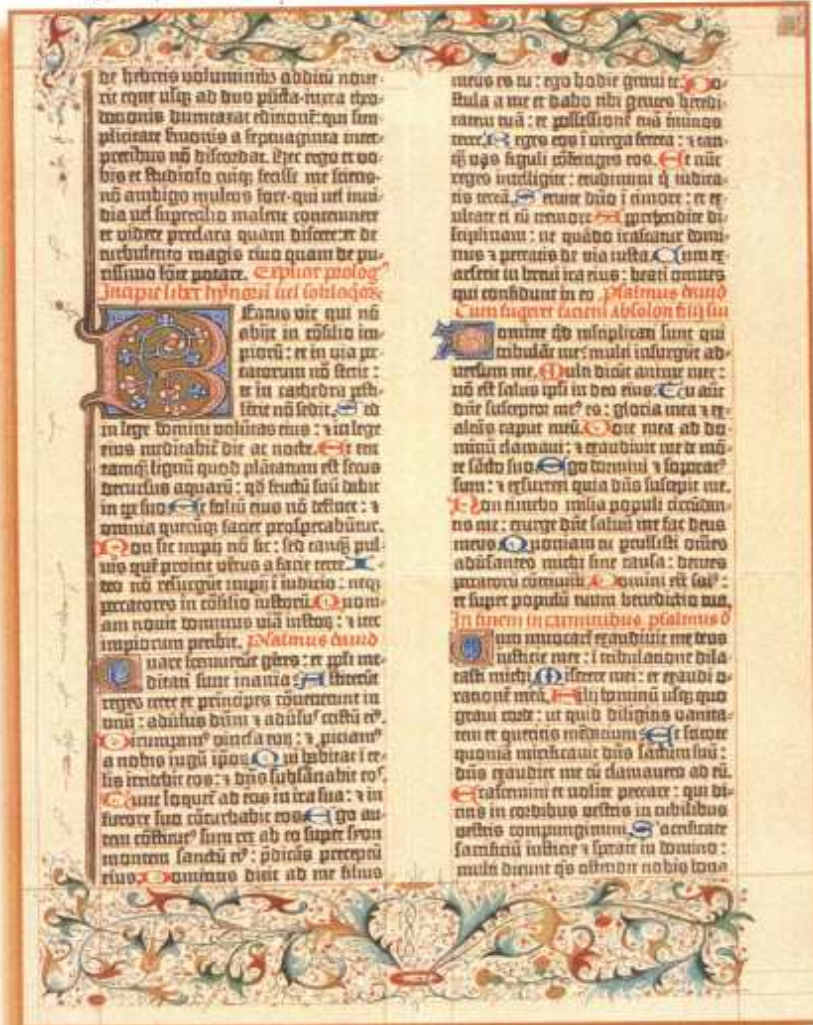 de hebreis voluminibꝫ additū noue-
rit eque usqꝫ ad duo pūcta · iuxta theo-
dotionis dumtaxat editionē: qui sim-
plicitate sermonis a septuaginta inter-
pretibus nō discordat. Hec ergo et vo-
bis et studioso cuiqꝫ fecisse me sciens·
nō ambigo multos fore · qui vel invi-
dia vel supercilio malent contemnere
et videre preclara quam discere: et de
turbulento magis rivo quam de pu-
rissimo fōte potare. Explicit prologꝰ
Incipit liber hymnorū vel soliloqiorꝫ
Beatus vir qui nō
abijt in cōsilio im-
piorū: et in via pec-
catorum nō stetit:
et in cathedra pesti-
lētie nō sedit. Sed
in lege domini volūtas eius: ⁊ in lege
eius meditabit᷑ die ac nocte. Et erit
tamqꝫ lignū quod plātatum est secus
decursus aquarū: qd̄ fructū suū dabit
in tꝑe suo Et foliū eius nō defluet: ⁊
omnia quecūqꝫ faciet prosperabūtur.
Non sic impij nō sic: sed tamqꝫ pul-
vis quē proicit vētus a facie terre. I-
deo nō resurgūt impij ī iudicio: neqꝫ
peccatores in cōsilio iustorū. Quoni-
am novit dominus viā iustorꝫ: ⁊ iter
impiorum peribit. Psalmus david
Quare fremuerūt gētes: et ppl̄i me-
ditati sunt inania: Astiterūt
reges terre et principes cōvenerunt in
unū: adūsus dn̄m ⁊ adūsus cristū eiꝰ.
Dirumpamꝰ vincl̄a eorꝫ: ⁊ piciamꝰ
a nobis iugū ipsorꝫ. Qui habitat ī ce-
lis irridebit eos: ⁊ dn̄s subsānabit eos.
Tunc loquet᷑ ad eos in ira sua: ⁊ in
furore suo cōturbabit eos. Ego au-
tem cōstitutꝰ sum rex ab eo super syon
montem sanctū eiꝰ: p̄dicās preceptū
eius. Dominus dixit ad me filius
meus es tu: ego hodie genui te. Po-
stula a me et dabo tibi gentes heredi-
tatem tuā: et possessionē tuā t̄minos
terre. Reges eos ī virga ferrea: ⁊ tan-
qꝫ vas figuli cōfringes eos. Et nūc
reges intelligite: erudimini q̇ iudica-
tis terrā. Servite dn̄o ī timore: et ex-
ultate ei cū tremore Apprehendite di-
sciplinam: ne quādo irascatur domi-
nus ⁊ pereatis de via iusta. Cum ex-
arserit in brevi ira eius: beati omnes
qui confidunt in eo Psalmus david
Cum fugeret faciem absolon filij sui
Domine qd̄ m̄ltiplicati sunt qui
tribulāt me: multi insurgūt ad-
versum me. Multi dicūt anime mee:
nō est salus ipsi in deo eius. Tu aūt
dn̄e susceptor meꝰ es: gloria mea ⁊ ex-
altās caput meū. Voce mea ad do-
minū clamavi: ⁊ exaudivit me de mō-
te sācto suo Ego dormivi ⁊ soporatꝰ
sum: ⁊ exsurrexi quia dn̄s suscepit me.
Non timebo milia populi circūdan-
tis me: exurge dn̄e salvū me fac deus
meus Quoniam tu percussisti om̄es
adūsantes michi sine causa: dentes
peccatorū cōtrivisti. Domini est salꝰ:
et super populū tuum benedictio tua.
In finem in carminibus. psalmus d̄
Cum invocarē exaudivit me deus
iusticie mee: ī tribulatione dila-
tasti michi. Miserere mei: et exaudi o-
rationē meā. Filij hominū usqꝫ quo
gravi corde: ut quid diligitis vanita-
tem et queritis mēdacium: Et scitote
quoniā mirificavit dn̄s sanctum suū:
dn̄s exaudiet me cū clamavero ad eū.
Irascimini et nolite peccare: qui di-
citis in cordibus vestris in cubilibus
vestris compungimini. Sacrificate
sacrificiū iusticie ⁊ sperate in domino:
multi dicunt q̇s ostendit nobis bona